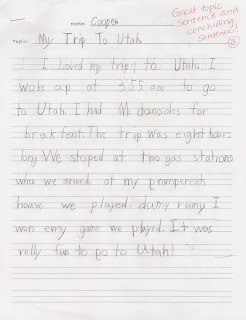 name: Cooper
Great topic
sentence and
concluding
sentence!
3
Topic: My Trip To Utah
I Loved my trip to Utah. I
woke up at 3:55 am to go
to Utah. I had Mcdanodes for
breakfeast. The trip was eight hours
long. We stoped at two gas stations
when we arrived at my gramperents
house we played dumy rumy. I
won evry game we played. It was
relly fun to go to Utah!